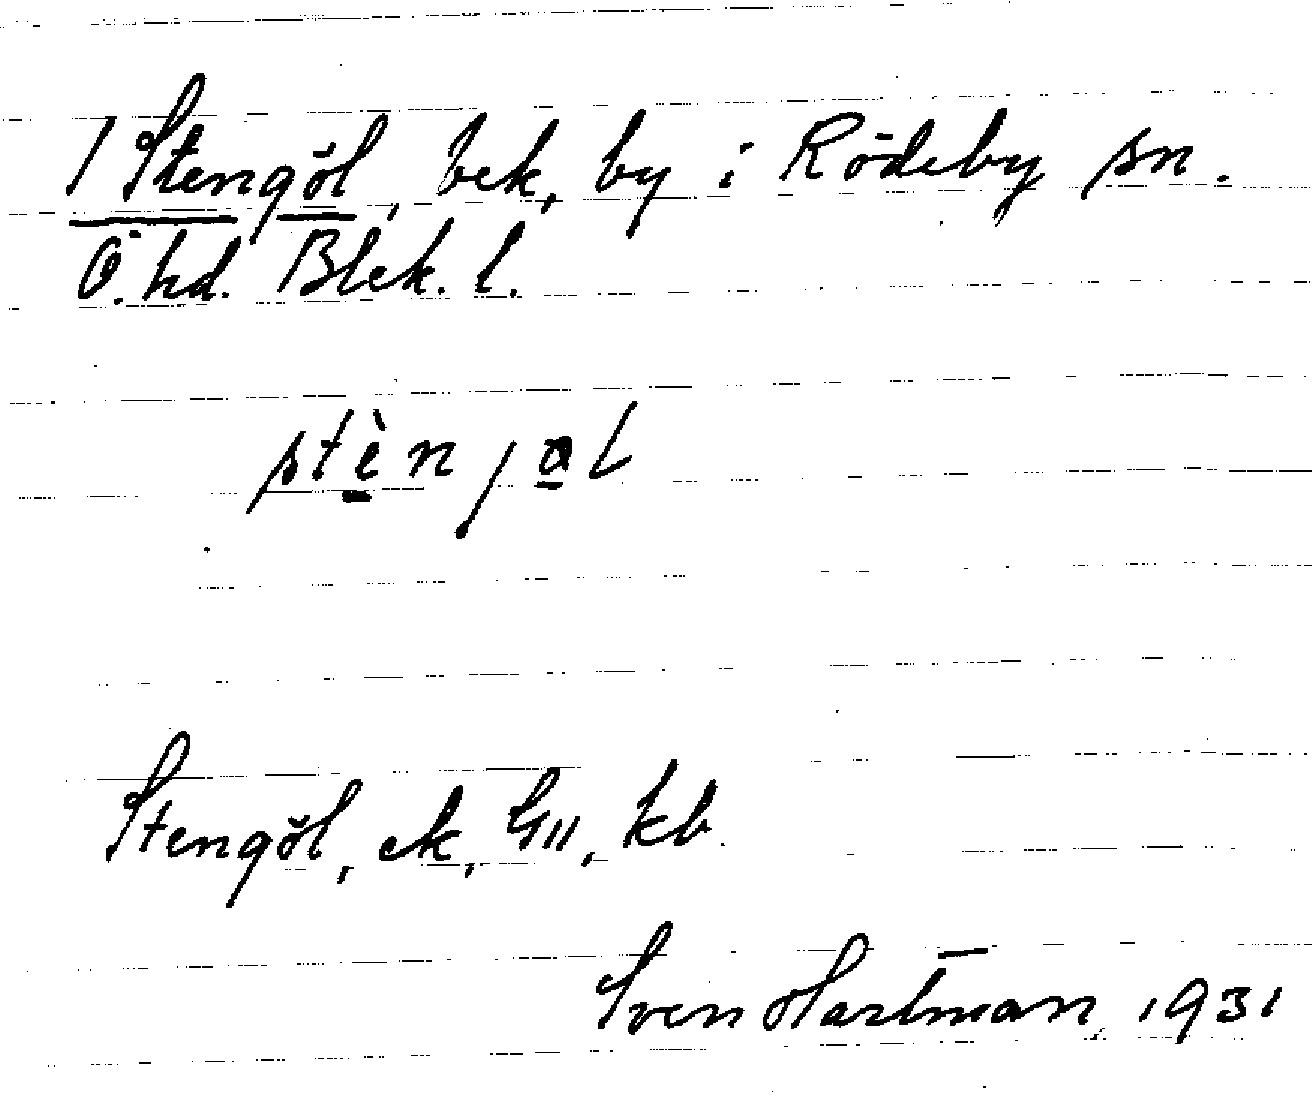 1 Stengöl, bek, by i Rödeby sn.
Ö. hd. Blek. l.
stènjal
Stengöl, ek, GII, kb.
Sven Hartman, 1931